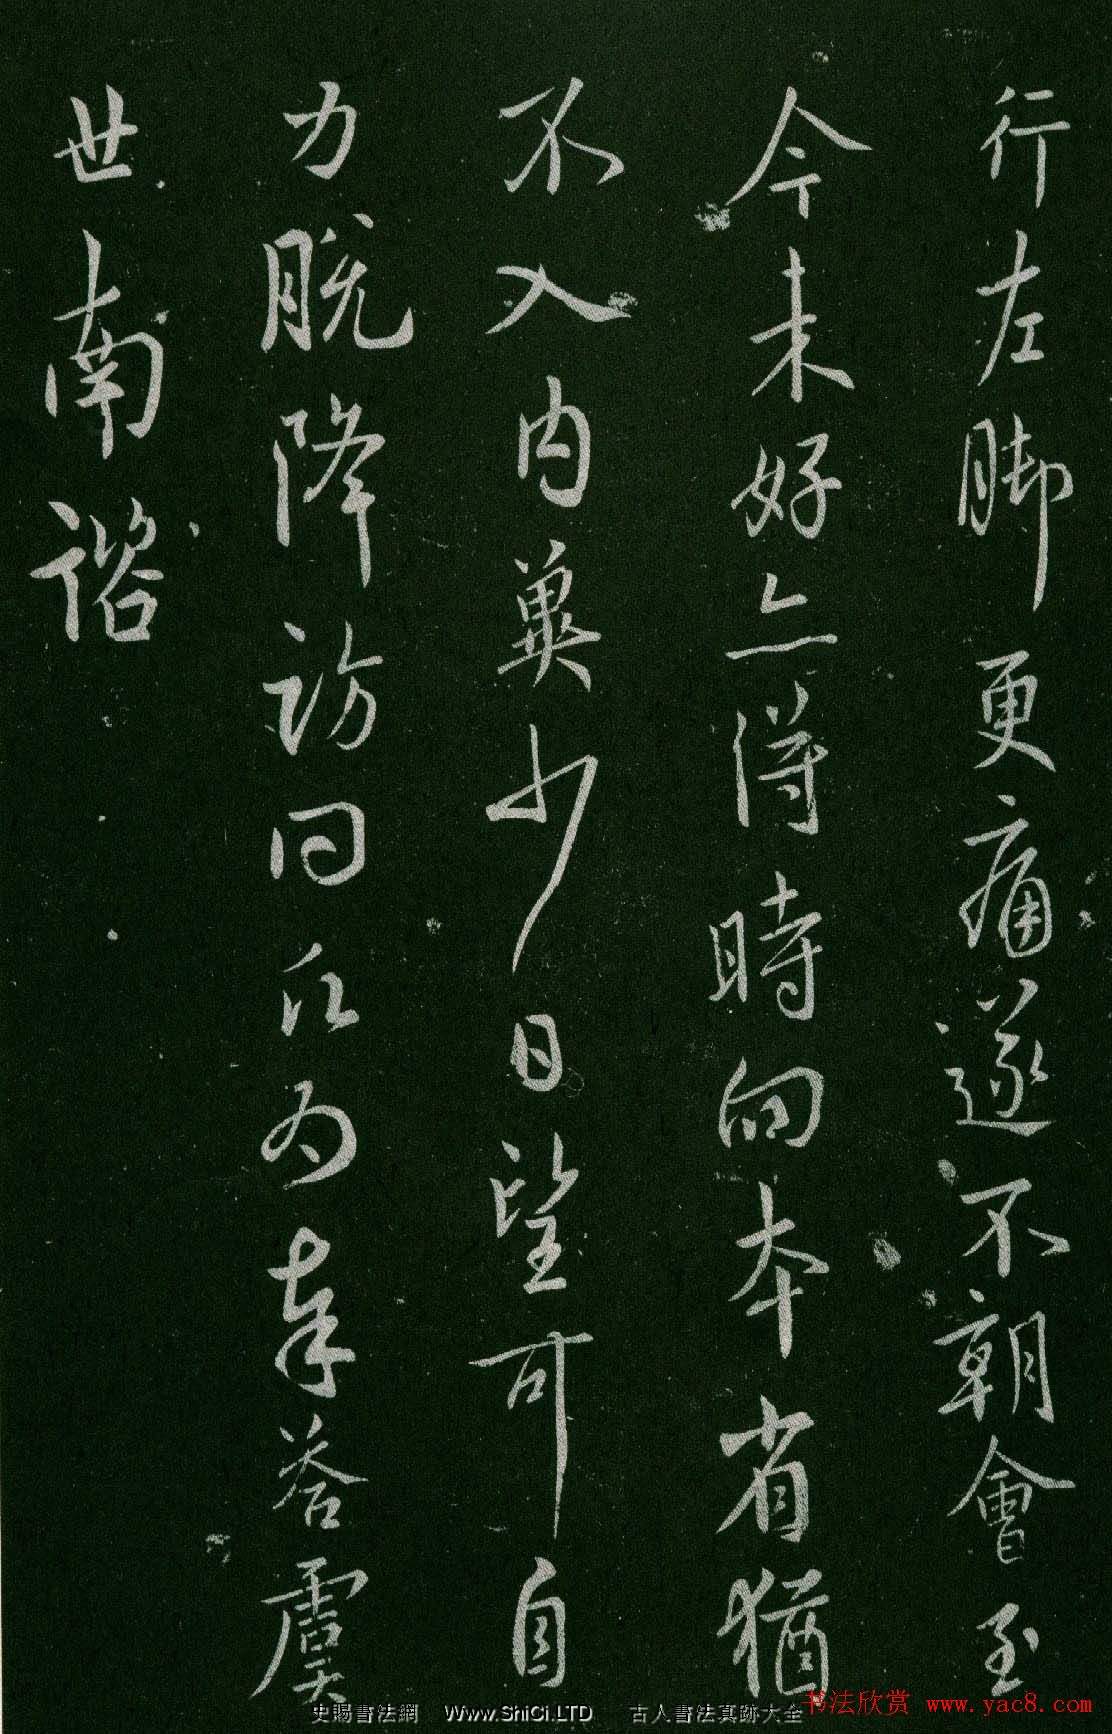 行左脚更痛遂不朝會至
今未好亦得時向本省猶
不入内冀少日望可自
力脱降訪問石为奉荅虞
世南諮
书法欣赏 www.yac8.com
史賜書法網 Www.ShiCi.LTD 古人書法真跡大全